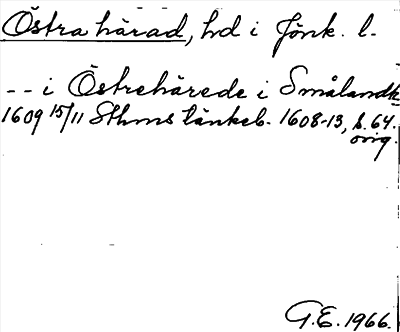 Östra härad, hd i Jönk. l.
-- i Östrehärede i Småland
1609 15/11 Sthms tänkeb. 1608-13, s. 64.
orig.
G.E. 1966.